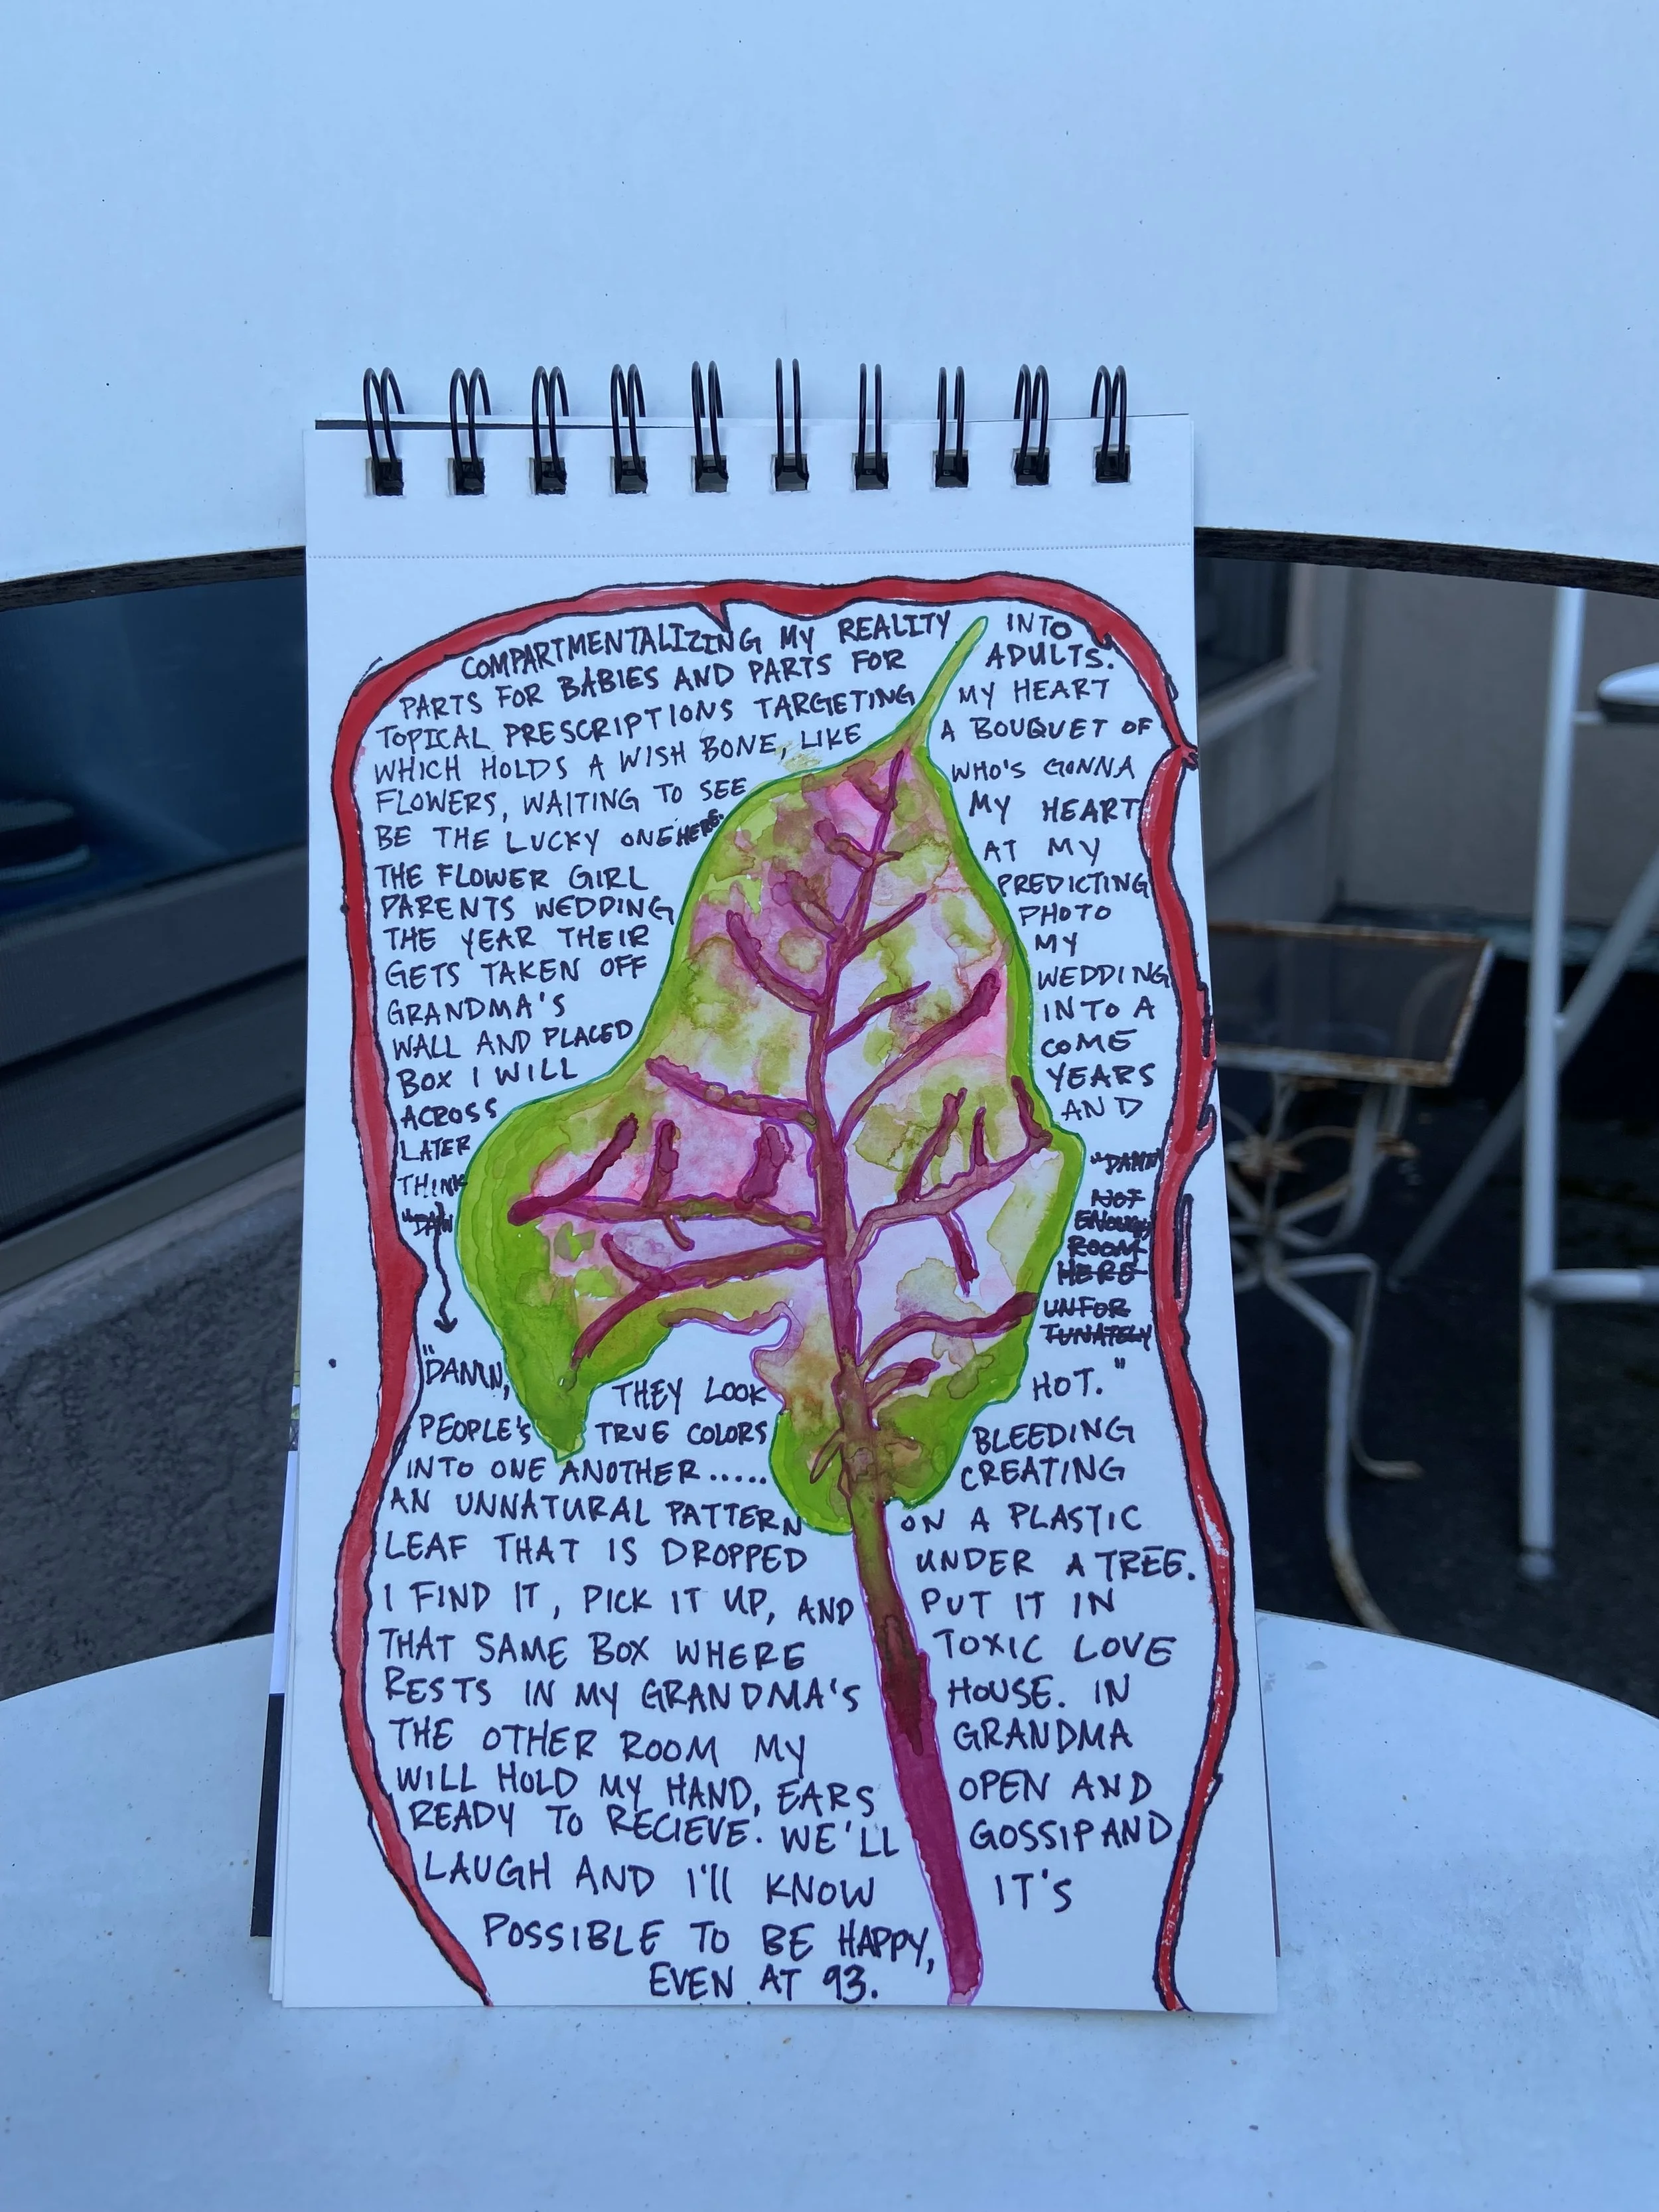 COMPARTMENTALIZING MY REALITY INTO
PARTS FOR BABIES AND PARTS FOR ADULTS.
TOPICAL PRESCRIPTIONS TARGETING MY HEART
WHICH HOLDS A WISH BONE, LIKE A BOUQUET OF
FLOWERS, WAITING TO SEE WHO'S GONNA
BE THE LUCKY ONE HERE. MY HEART
THE FLOWER GIRL AT MY
PARENTS WEDDING PREDICTING
THE YEAR THEIR PHOTO
GETS TAKEN OFF MY
GRANDMA'S WEDDING
WALL AND PLACED INTO A
BOX I WILL COME
ACROSS YEARS
LATER AND
THINK "DAMN
"DAM NOT
ENOUGH
ROOM
HERE
UNFOR
TUNATELY
"DAMN, THEY LOOK HOT."
PEOPLE'S TRUE COLORS BLEEDING
INTO ONE ANOTHER..... CREATING
AN UNNATURAL PATTERN ON A PLASTIC
LEAF THAT IS DROPPED UNDER A TREE.
I FIND IT, PICK IT UP, AND PUT IT IN
THAT SAME BOX WHERE TOXIC LOVE
RESTS IN MY GRANDMA'S HOUSE. IN
THE OTHER ROOM MY GRANDMA
WILL HOLD MY HAND, EARS OPEN AND
READY TO RECIEVE. WE'LL GOSSIP AND
LAUGH AND I'll KNOW IT'S
POSSIBLE TO BE HAPPY,
EVEN AT 93.